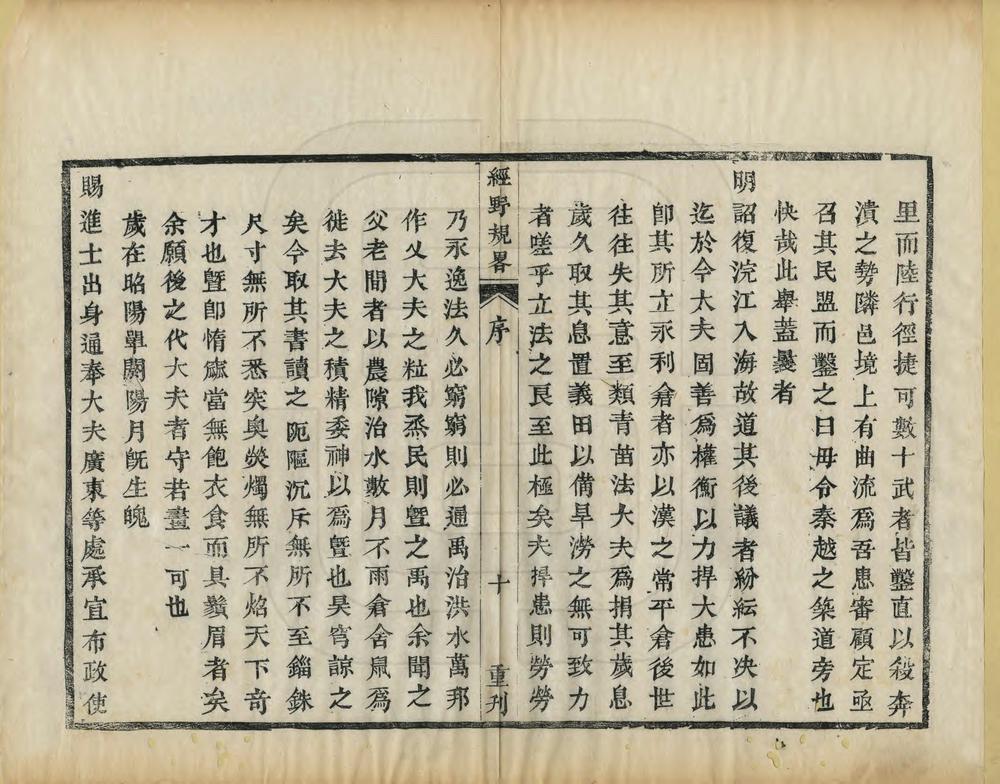 里而陸行徑捷可數十武者皆鑿直以殺奔
潰之勢隣邑境上有曲流爲吾患審顧定亟
召其民盟而鑿之曰毋令秦越之築道旁也
快哉此舉蓋曩者
明詔復浣江入海故道其後議者紛紜不决以
迄於今大夫固善爲權衡以力捍大患如此
卽其所立永利倉者亦以漢之常平倉後世
往往失其意至類青苗法大夫爲捐其歲息
歲久取其息置義田以備旱澇之無可致力
者嗟乎立法之良至此極矣夫捍患則勞勞
經野規畧
序
十
重刊
乃永逸法久必窮窮則必通禹治洪水萬邦
作乂大夫之粒我烝民則曁之禹也余聞之
父老間者以農隙治水數月不雨倉舍鼠爲
徙去大夫之積精委神以爲曁也昊穹諒之
矣今取其書讀之阨隁沉斥無所不至錙銖
尺寸無所不悉突奥熒燭無所不焰天下竒
才也曁卽惰窳當無飽衣食而具鬚眉者矣
余願後之代大夫者守若畫一可也
歲在昭陽單閼陽月旣生魄
賜進士出身通奉大夫廣東等處承宣布政使